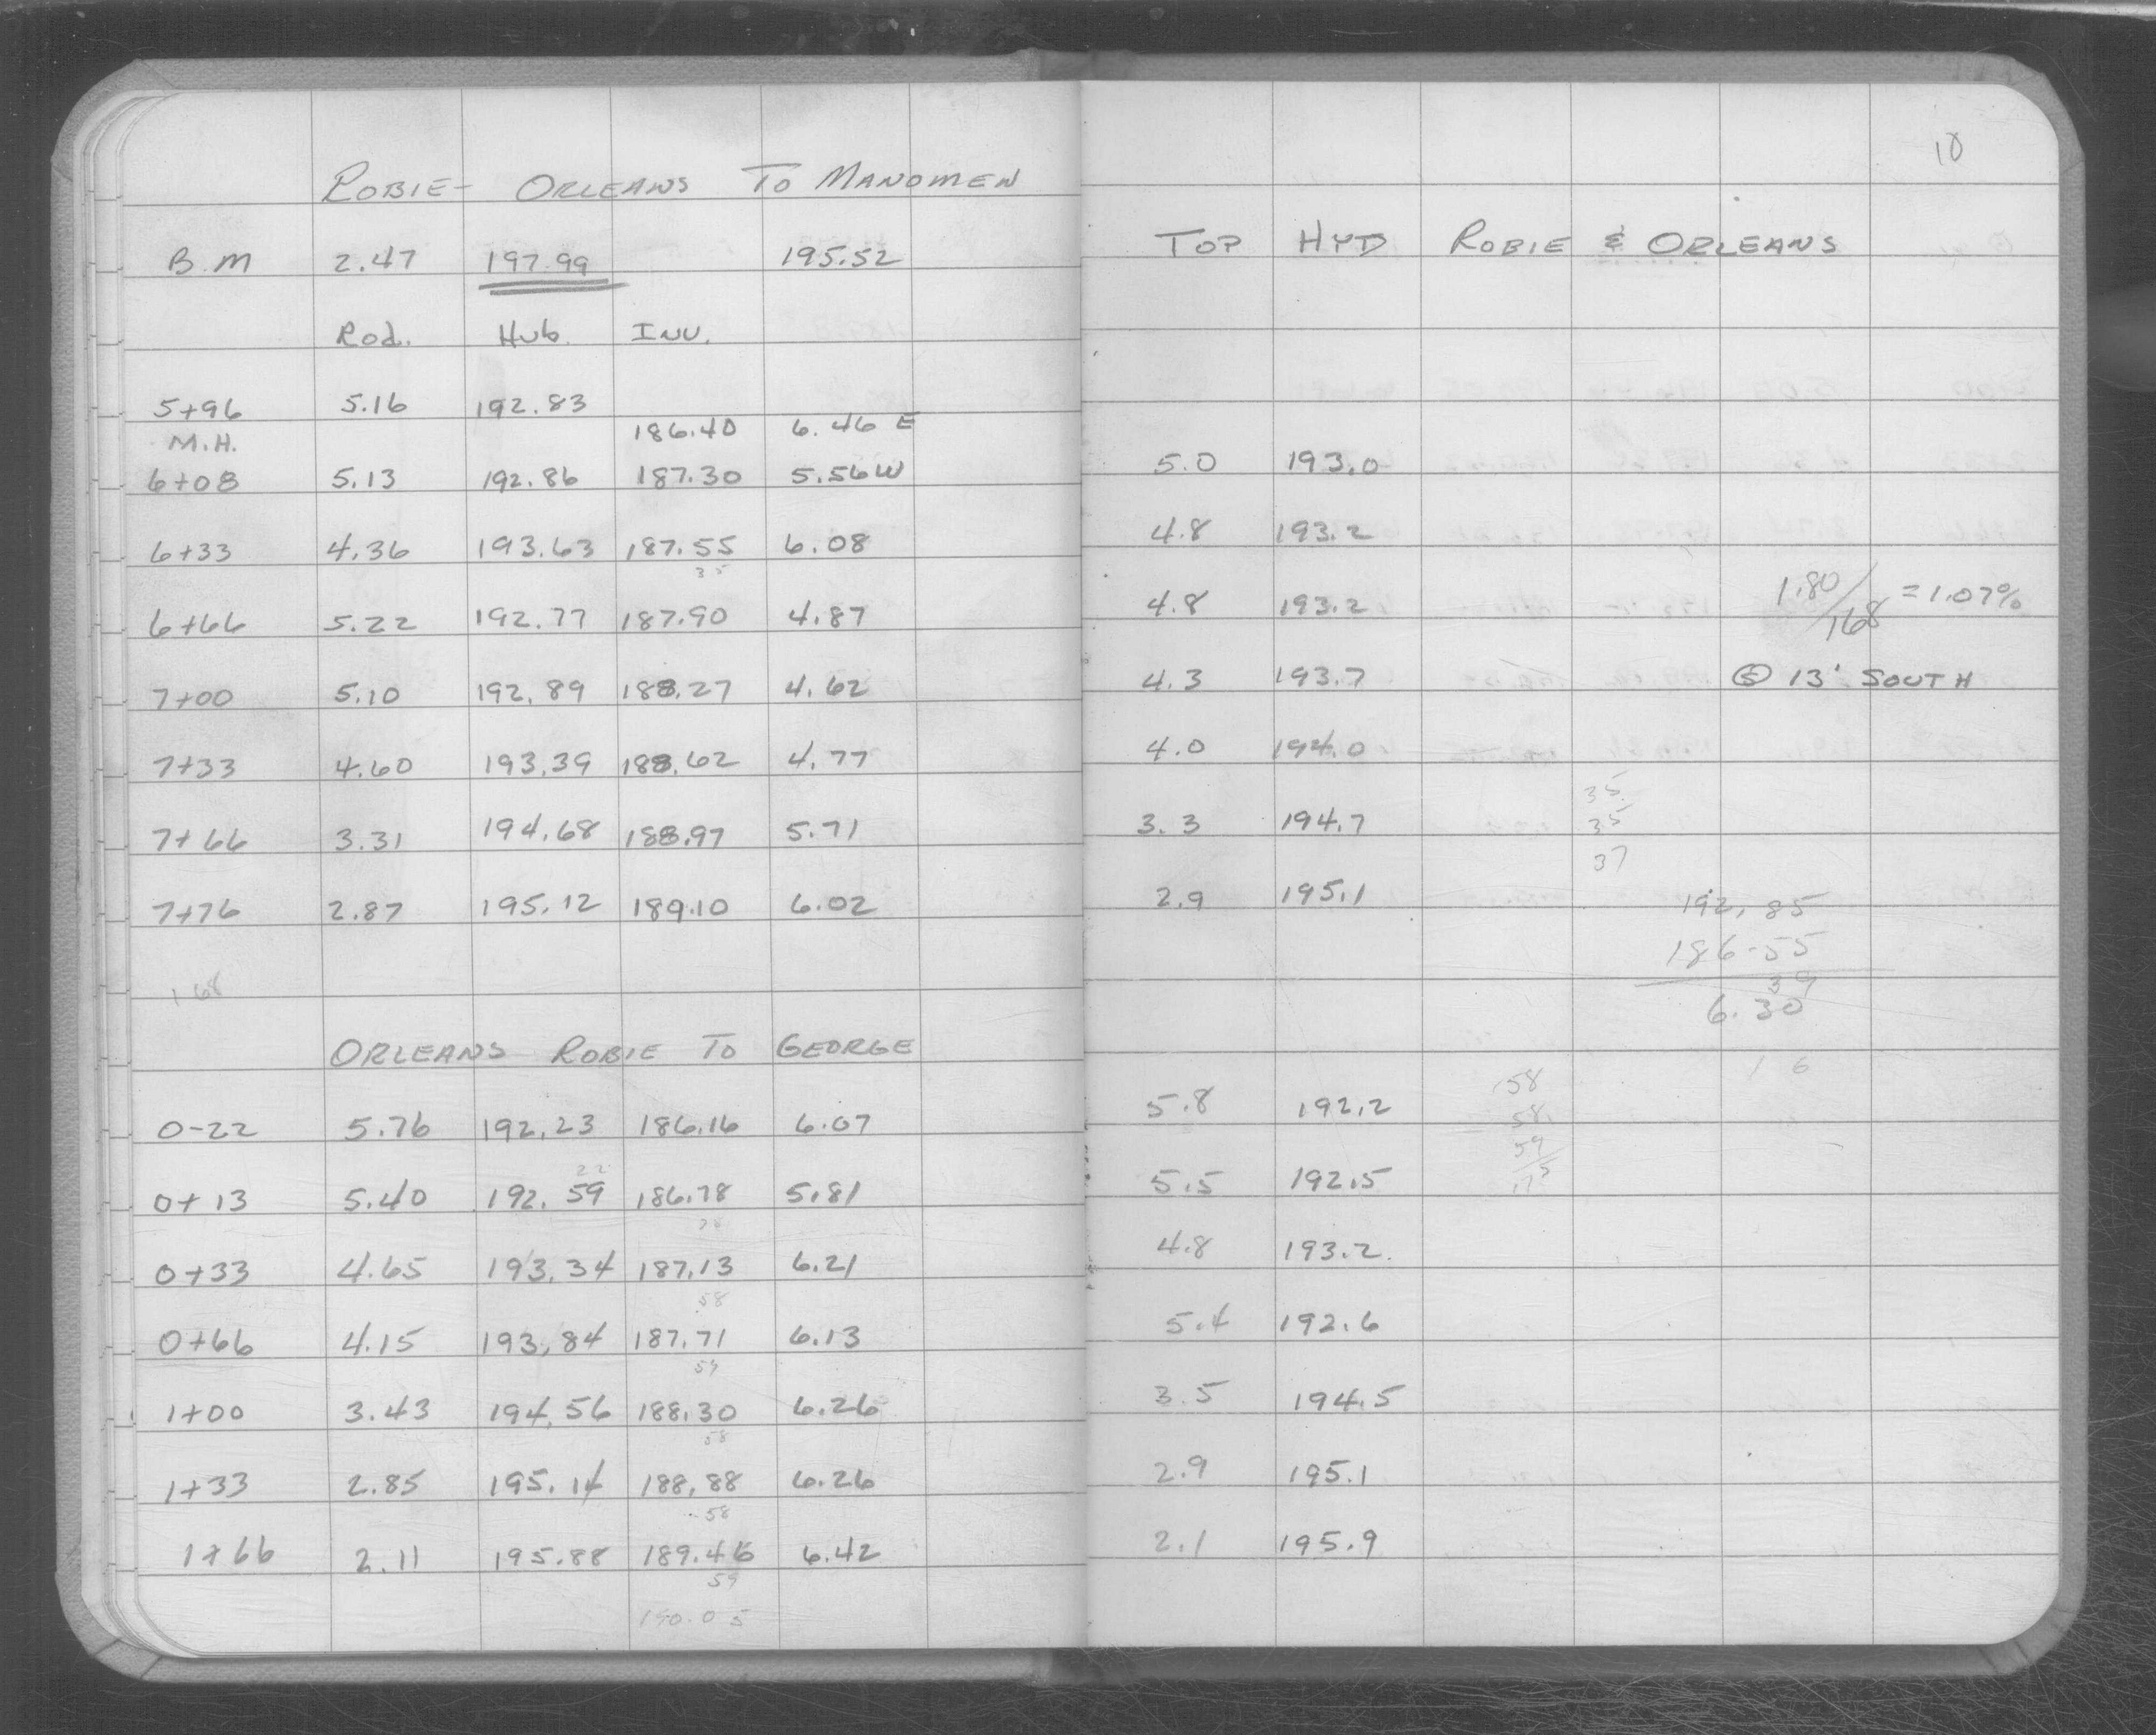 ROBIE- ORLEANS TO MANOMEN
B.M 2.47 197.99 195.52
Rod. Hub. INV.
5+96 5.16 192.83
M.H. 186.40 6.46 E
6+08 5.13 192.86 187.30 5.56 W
6+33 4.36 193.63 187.55 6.08
35
6+66 5.22 192.77 187.90 4.87
7+00 5.10 192.89 188.27 4.62
7+33 4.60 193.39 188.62 4.77
7+66 3.31 194.68 188.97 5.71
7+76 2.87 195.12 189.10 6.02
168
ORLEANS ROBIE TO GEORGE
0-22 5.76 192.23 186.16 6.07
22
0+13 5.40 192.59 186.78 5.81
0+33 4.65 193.34 187.13 6.21
58
0+66 4.15 193.84 187.71 6.13
59
1+00 3.43 194.56 188.30 6.26
58
1+33 2.85 195.14 188.88 6.26
58
1+66 2.11 195.88 189.46 6.42
59
190.05
10
TOP HYD ROBIE & ORLEANS
5.0 193.0
4.8 193.2
4.8 193.2 1.80/168 = 1.07%
4.3 193.7 @ 13' SOUTH
4.0 194.0
35
3.3 194.7 35
37
2.9 195.1 192.85
186.55
39
6.30
1 6
58
5.8 192.2
58
59
5.5 192.5
175
4.8 193.2
5.4 192.6
3.5 194.5
2.9 195.1
2.1 195.9